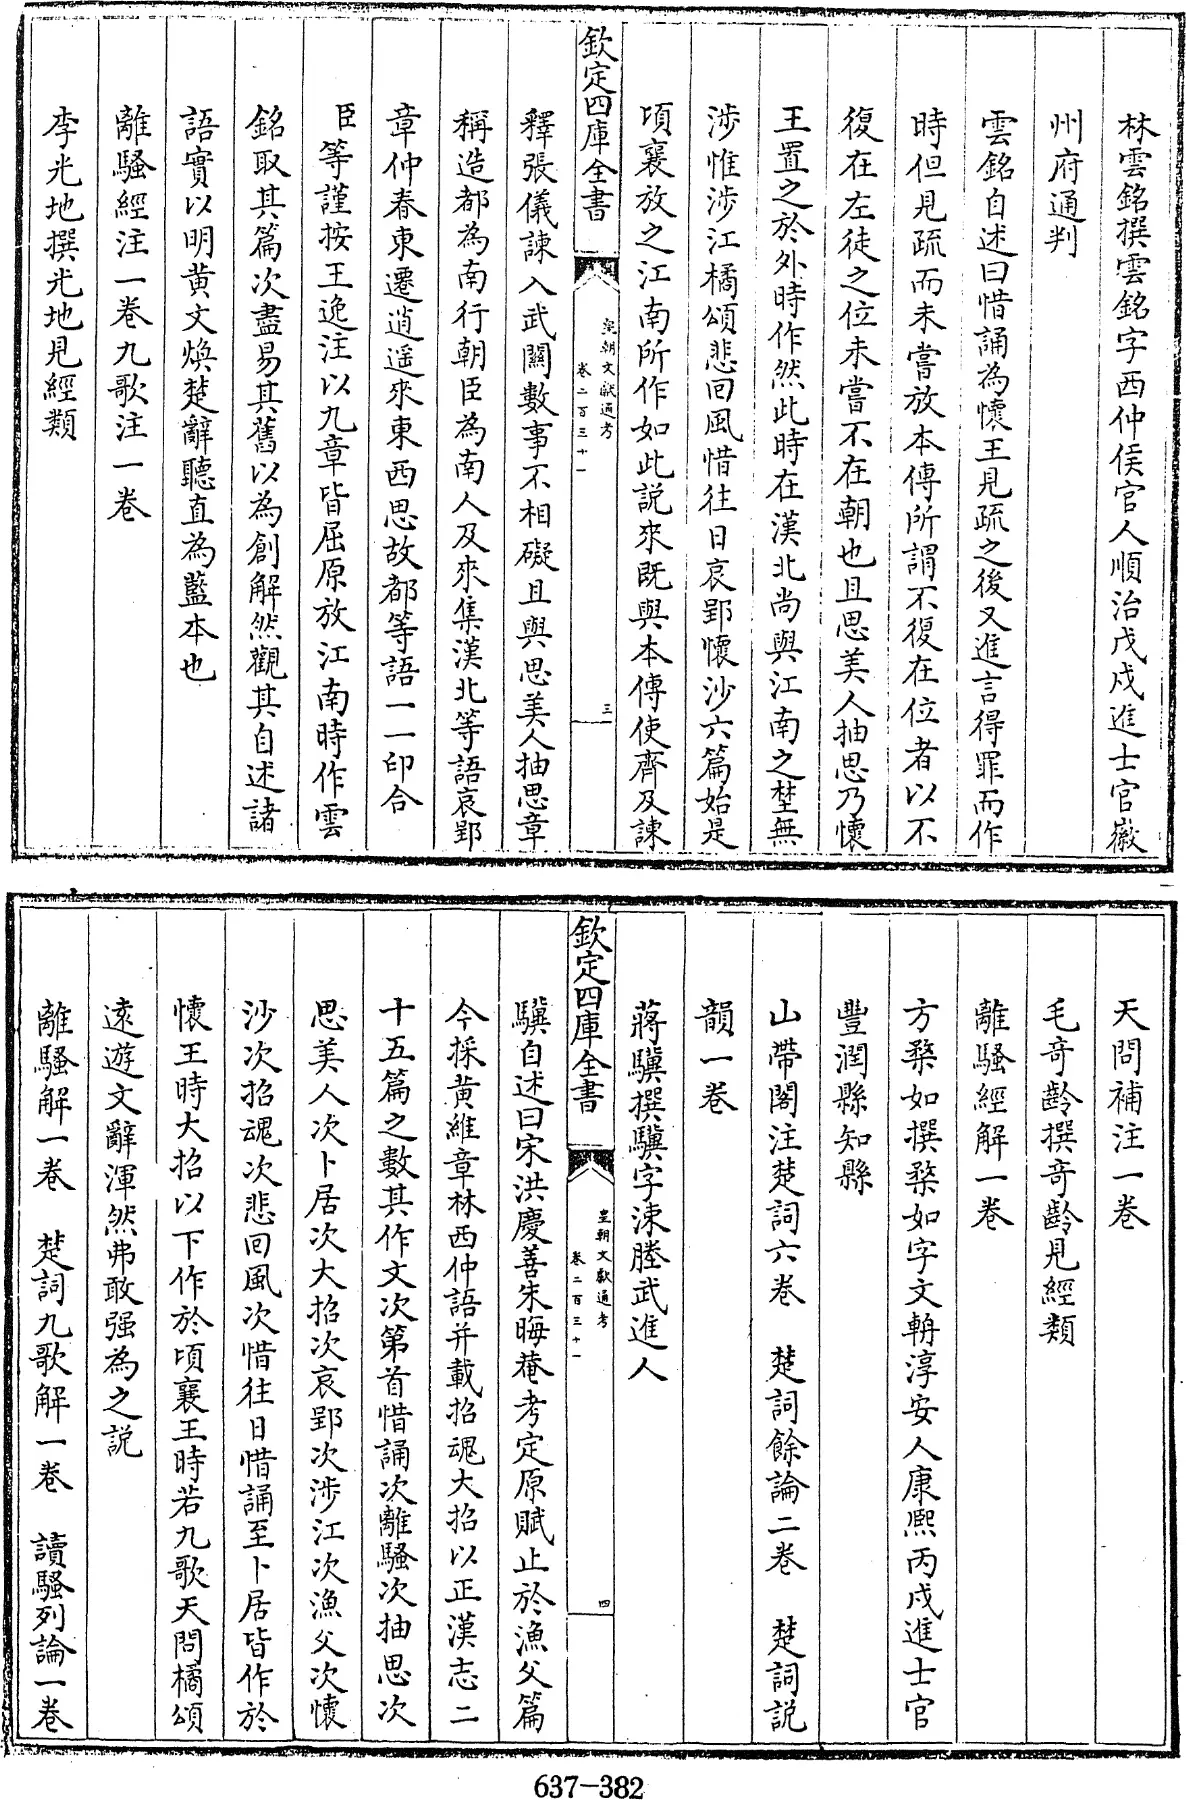 林雲銘撰雲銘字西仲侯官人順治戊戌進士官徽
州府通判
雲銘自述曰惜誦為懷王見疏之後又進言得罪而作
時但見疏而未嘗放本傳所謂不復在位者以不
復在左徒之位未嘗不在朝也且思美人抽思乃懷
王置之於外時作然此時在漢北尚與江南之埜無
涉惟涉江橘頌悲回風惜往日哀郢懷沙六篇始是
頃襄放之江南所作如此説來既與本傳使齊及諫
欽定四庫全書
皇朝文獻通考
卷二百三十一
三
釋張儀諫入武關數事不相礙且與思美人抽思章
稱造都為南行朝臣為南人及來集漢北等語哀郢
章仲春東遷逍遥來東西思故都等語一一印合
臣等謹按王逸注以九章皆屈原放江南時作雲
銘取其篇次盡易其舊以為創解然觀其自述諸
語實以明黄文煥楚辭聽直為藍本也
離騷經注一卷九歌注一卷
李光地撰光地見經類
天問補注一卷
毛奇齡撰奇齡見經類
離騷經解一卷
方楘如撰楘如字文輈淳安人康熙丙戌進士官
豐潤縣知縣
山帶閣注楚詞六卷 楚詞餘論二卷 楚詞説
韻一卷
蔣驥撰驥字涑塍武進人
欽定四庫全書
皇朝文獻通考
卷二百三十一
四
驥自述曰宋洪慶善朱晦菴考定原賦止於漁父篇
今採黄維章林西仲語并載招魂大招以正漢志二
十五篇之數其作文次第首惜誦次離騷次抽思次
思美人次卜居次大招次哀郢次涉江次漁父次懷
沙次招魂次悲回風次惜往日惜誦至卜居皆作於
懷王時大招以下作於頃襄王時若九歌天問橘頌
遠遊文辭渾然弗敢强為之説
離騷解一卷 楚詞九歌解一卷 讀騷列論一卷
637-382